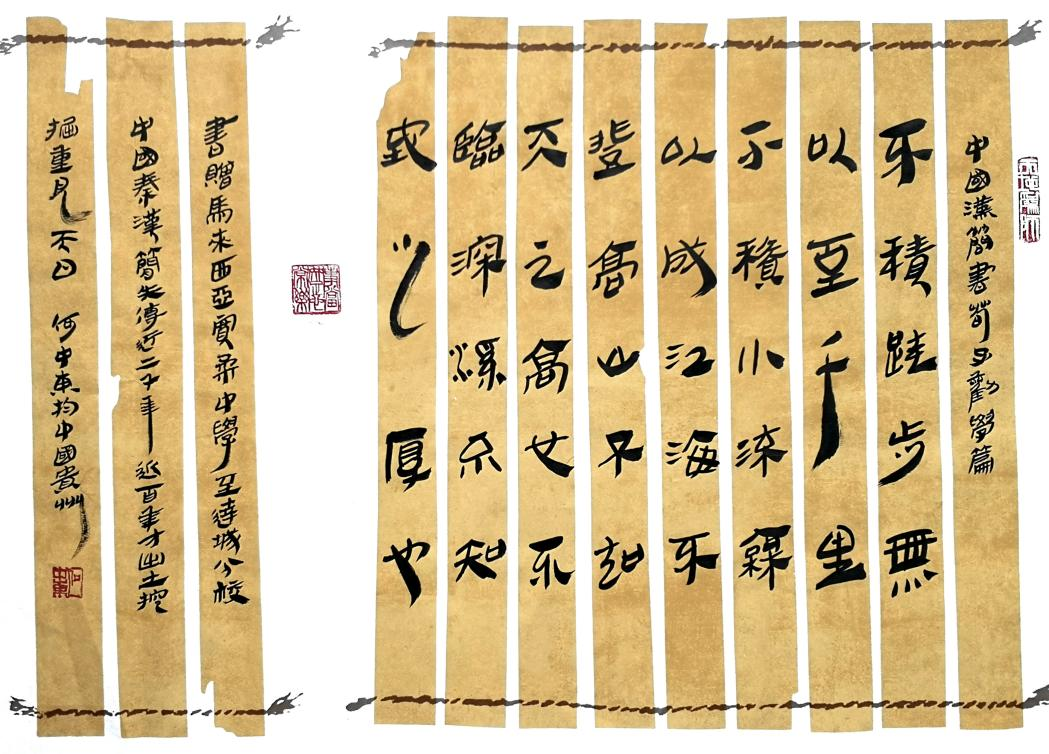 中國漢簡書荀子勸學篇
不積跬步無
以至千里
不積小流無
以成江海不
登高山不知
天之高也不
臨深谿不知
地之厚也
書贈馬來西亞寬柔中學至達城分校
中國秦漢簡失傳近二千年近百年才出土挖
掘重見天日 何中東於中國貴州
何中東